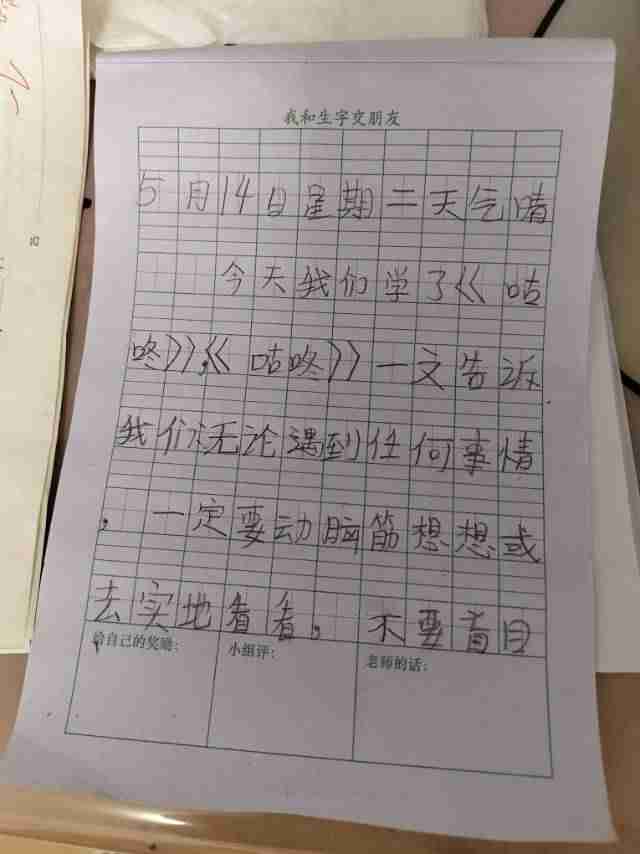 我和生字交朋友
5月14日星期二天气晴
今天我们学了《咕
咚》,《咕咚》一文告诉
我们无论遇到任何事情
，一定要动脑筋想想或
去实地看看。不要盲目
给自己的奖励：
小组评：
老师的话：